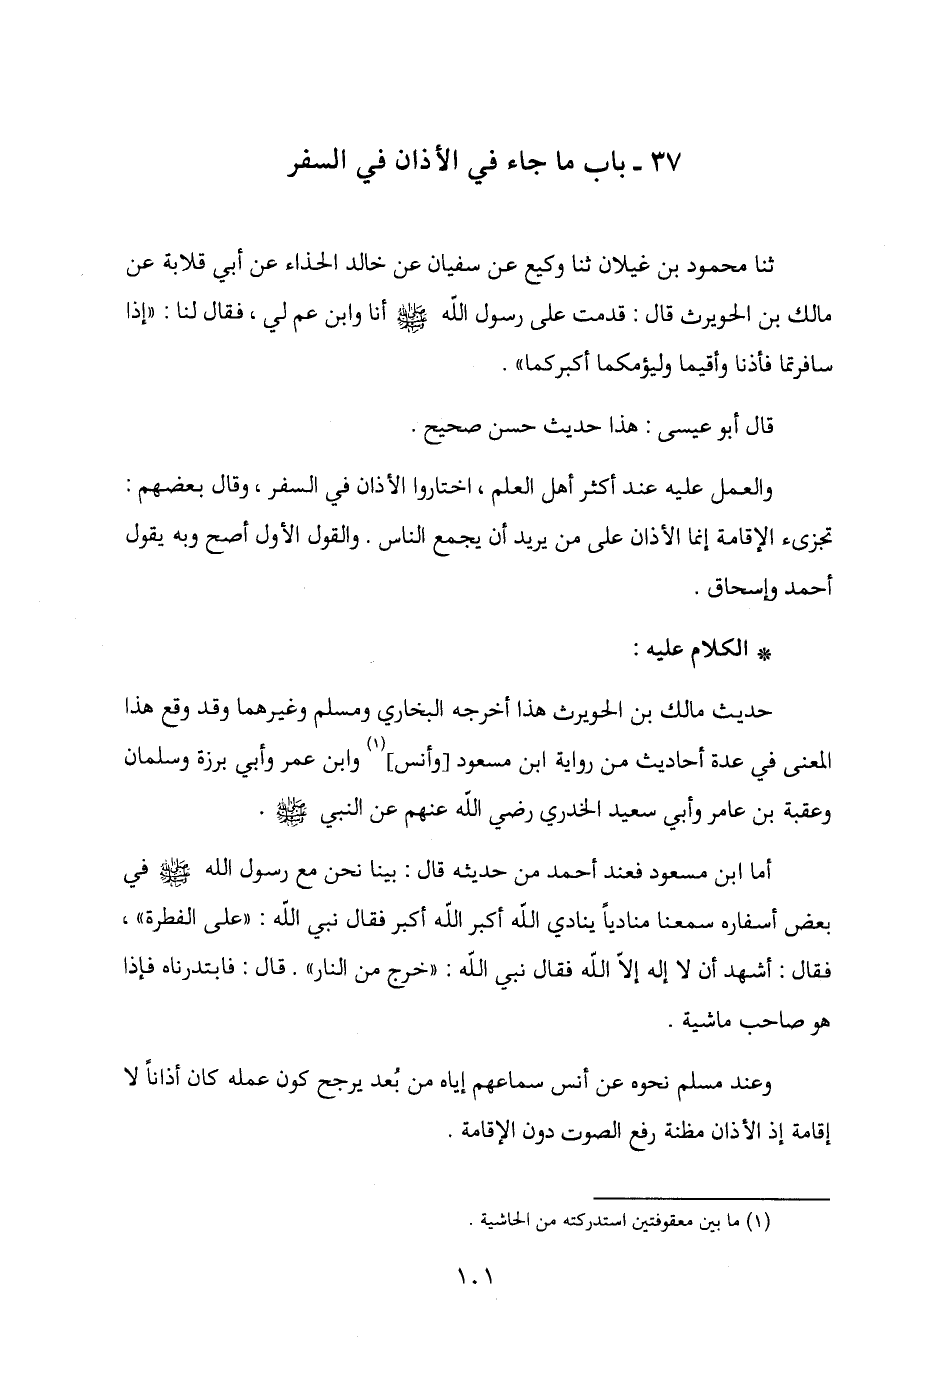 ٣٧ ـ باب ما جاء في الأذان في السفر
ثنا محمود بن غيلان ثنا وكيع عن سفيان عن خالد الحذاء عن أبي قلابة عن
مالك بن الحويرث قال : قدمت على رسول اللّه ﷺ أنا وابن عم لي ، فقال لنا : «إذا
سافرتما فأذنا وأقيما وليؤمكما أكبركما» .
قال أبو عيسى : هذا حديث حسن صحيح .
والعمل عليه عند أكثر أهل العلم ، اختاروا الأذان في السفر ، وقال بعضهم :
تجزىء الإقامة إنما الأذان على من يريد أن يجمع الناس . والقول الأول أصح وبه يقول
أحمد وإسحاق .
* الكلام عليه :
حديث مالك بن الحويرث هذا أخرجه البخاري ومسلم وغيرهما وقد وقع هذا
المعنى في عدة أحاديث من رواية ابن مسعود [وأنس](١) وابن عمر وأبي برزة وسلمان
وعقبة بن عامر وأبي سعيد الخدري رضي اللّه عنهم عن النبي ﷺ .
أما ابن مسعود فعند أحمد من حديثه قال : بينا نحن مع رسول الله ﷺ في
بعض أسفاره سمعنا منادياً ينادي اللّه أكبر اللّه أكبر فقال نبي اللّه : «على الفطرة» ،
فقال : أشهد أن لا إله إلاّ اللّه فقال نبي اللّه : «خرج من النار» . قال : فابتدرناه فإذا
هو صاحب ماشية .
وعند مسلم نحوه عن أنس سماعهم إياه من بُعد يرجح كون عمله كان أذاناً لا
إقامة إذ الأذان مظنة رفع الصوت دون الإقامة .
(١) ما بين معقوفتين استدركته من الحاشية .
١٠١